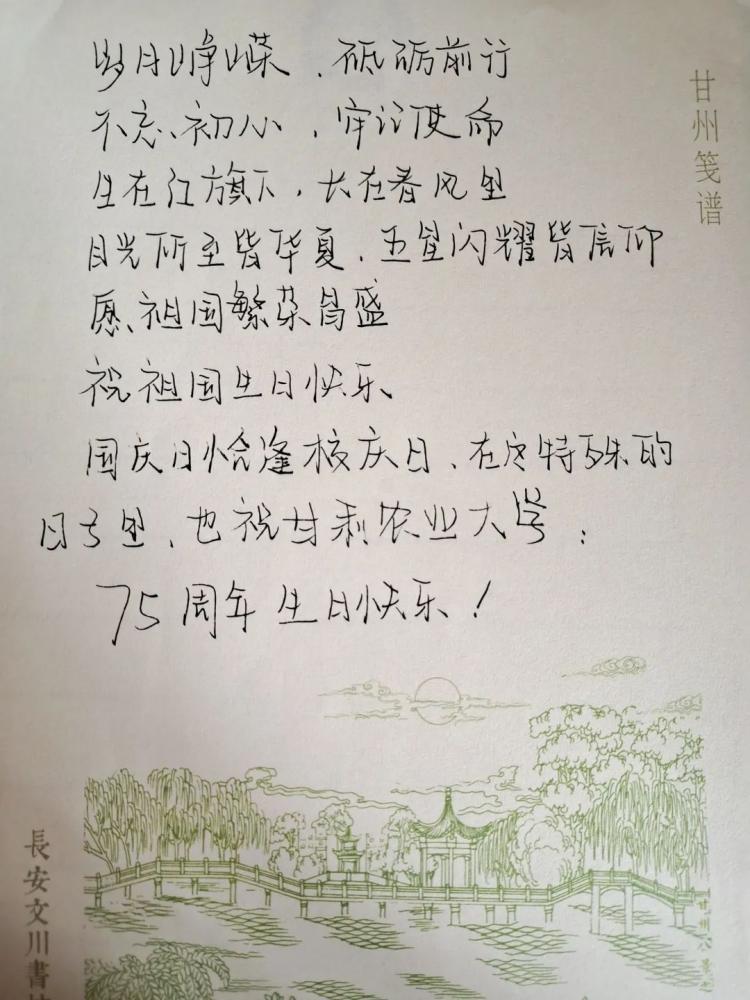 岁月峥嵘、砥砺前行
不忘初心，牢记使命
生在红旗下，长在春风里
目光所至皆华夏、五星闪耀皆信仰
愿祖国繁荣昌盛
祝祖国生日快乐、
国庆日恰逢校庆日、在这特殊的
日子里、也祝甘肃农业大学：
75周年生日快乐！
甘州笺谱
長安文川書
甘州八景之